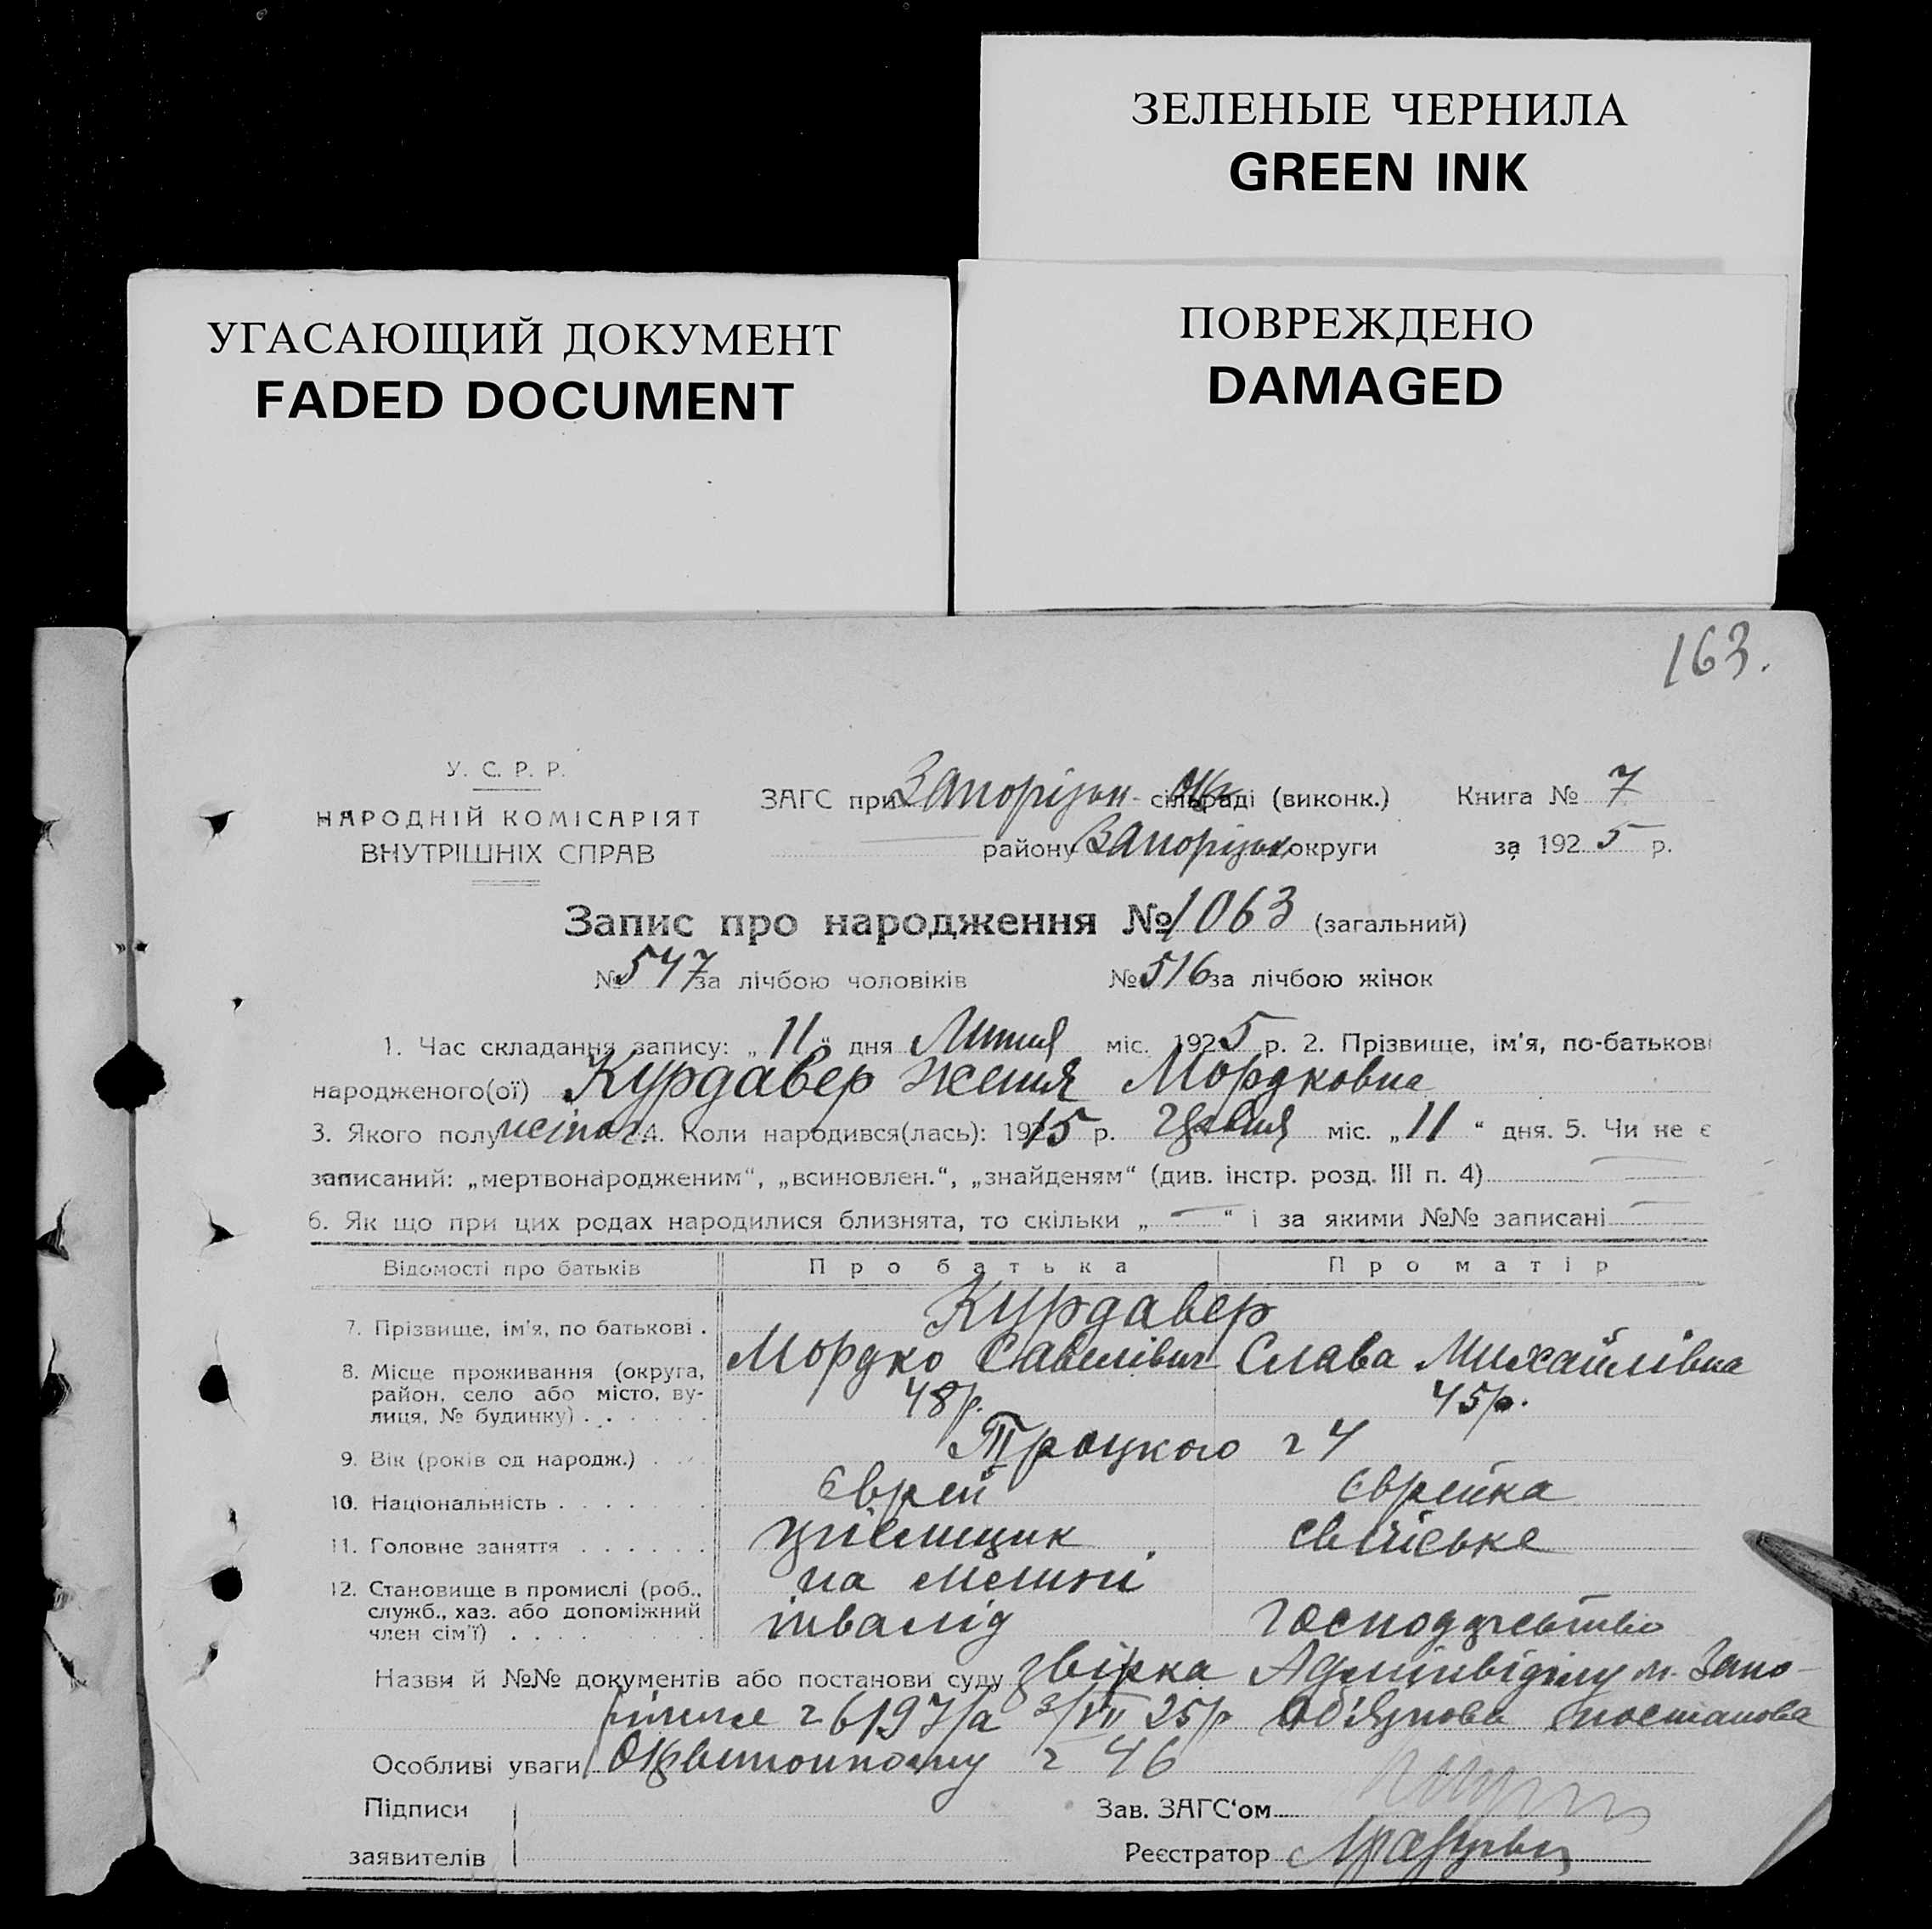 ЗЕЛЕНЫЕ ЧЕРНИЛА
GREEN INK
УГАСАЮЩИЙ ДОКУМЕНТ
FADED DOCUMENT
ПОВРЕЖДЕНО
DAMAGED
163.
У. С. Р. Р.
НАРОДНІЙ КОМІСАРІЯТ
ВНУТРІШНІХ СПРАВ
ЗАГС при Запорізьк сільраді (виконк.) Книга № 7
району Запорізьк округи за 1925 р.
Запис про народження № 1063 (загальний)
№ 547 за лічбою чоловіків № 516 за лічбою жінок
1. Час складання запису: „11“ дня Липня міс. 1925 р. 2. Прізвище, ім'я, по-батькові
народженого(ої) Курдавер Женя Мордковна
3. Якого полу 4. Коли народився(лась): 1915 р. міс. „11“ дня. 5. Чи не є
записаний: „мертвонародженим“, „всиновлен.“, „знайденям“ (див. інстр. розд. III п. 4)
6. Як що при цих родах народилися близнята, то скільки „—“ і за якими №№ записані
Відомості про батьків Про батька Про матір
7. Прізвище, ім'я, по батькові . Курдавер
Мордко Савелівич Слава Михайлівна
8. Місце проживання (округа,
район, село або місто, ву-
лиця, № будинку) . . . . . .
48р. 45р.
9. Вік (років од народж.) . . . Троцкого ч 4
10. Національність . . . . . . . єврей єврейка
11. Головне заняття . . . . . . свійське
12. Становище в промислі (роб.,
служб., хаз. або допоміжний
член сім'ї) . . . . .
на
інвалід господарство
Назви й №№ документів або постанови суду Адмінвідділу м. Запо-
ріжжя ч 6197/а 3/VII 25р постанова
Особливі уваги ч 46
Підписи
заявителів
Зав. ЗАГС'ом
Реєстратор